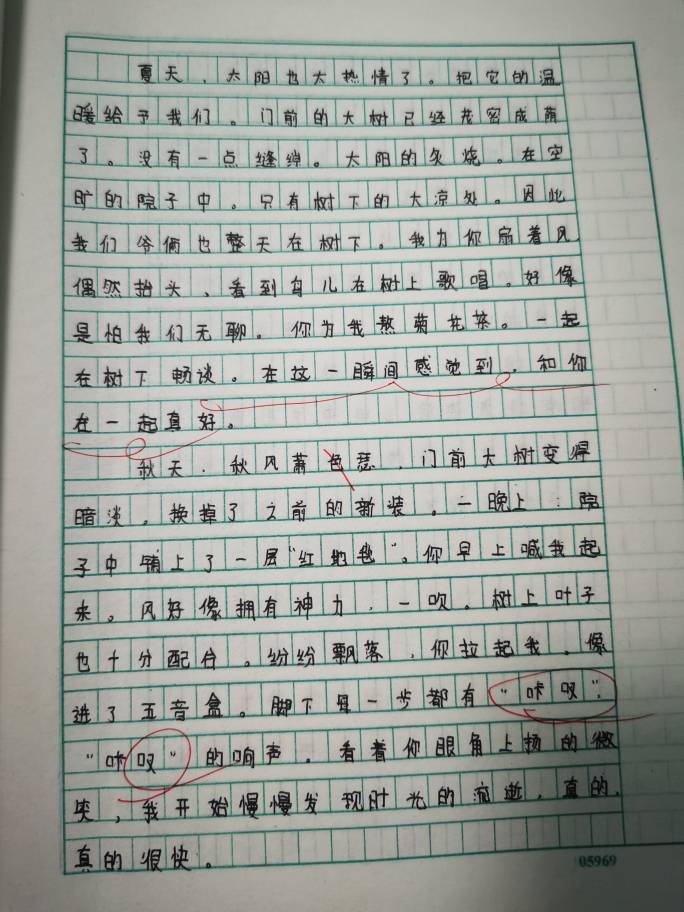 夏天，太阳也太热情了。把它的温
暖给予我们。门前的大树已经茂密成荫
了。没有一点缝绰。太阳的炙烧。在空
旷的院子中。只有树下的大凉处。因此
我们爷俩也整天在树下。我为你扇着风
偶然抬头、看到鸟儿在树上歌唱。好像
是怕我们无聊。你为我熬菊花茶。一起
在树下畅谈。在这一瞬间感觉到，和你
在一起真好。
秋天，秋风萧色瑟，门前大树变得
暗淡，换掉了之前的新装。一晚上：院
子中铺上了一层“红地毯”。你早上喊我起
来。风好像拥有神力，一吹。树上叶子
也十分配合。纷纷飘落，你拉起我，像
进了五音盒。脚下每一步都有“咔叹”，
“咔叹”的响声。看着你眼角上扬的微
笑，我开始慢慢发现时光的流逝，真的，
真的很快。
05969